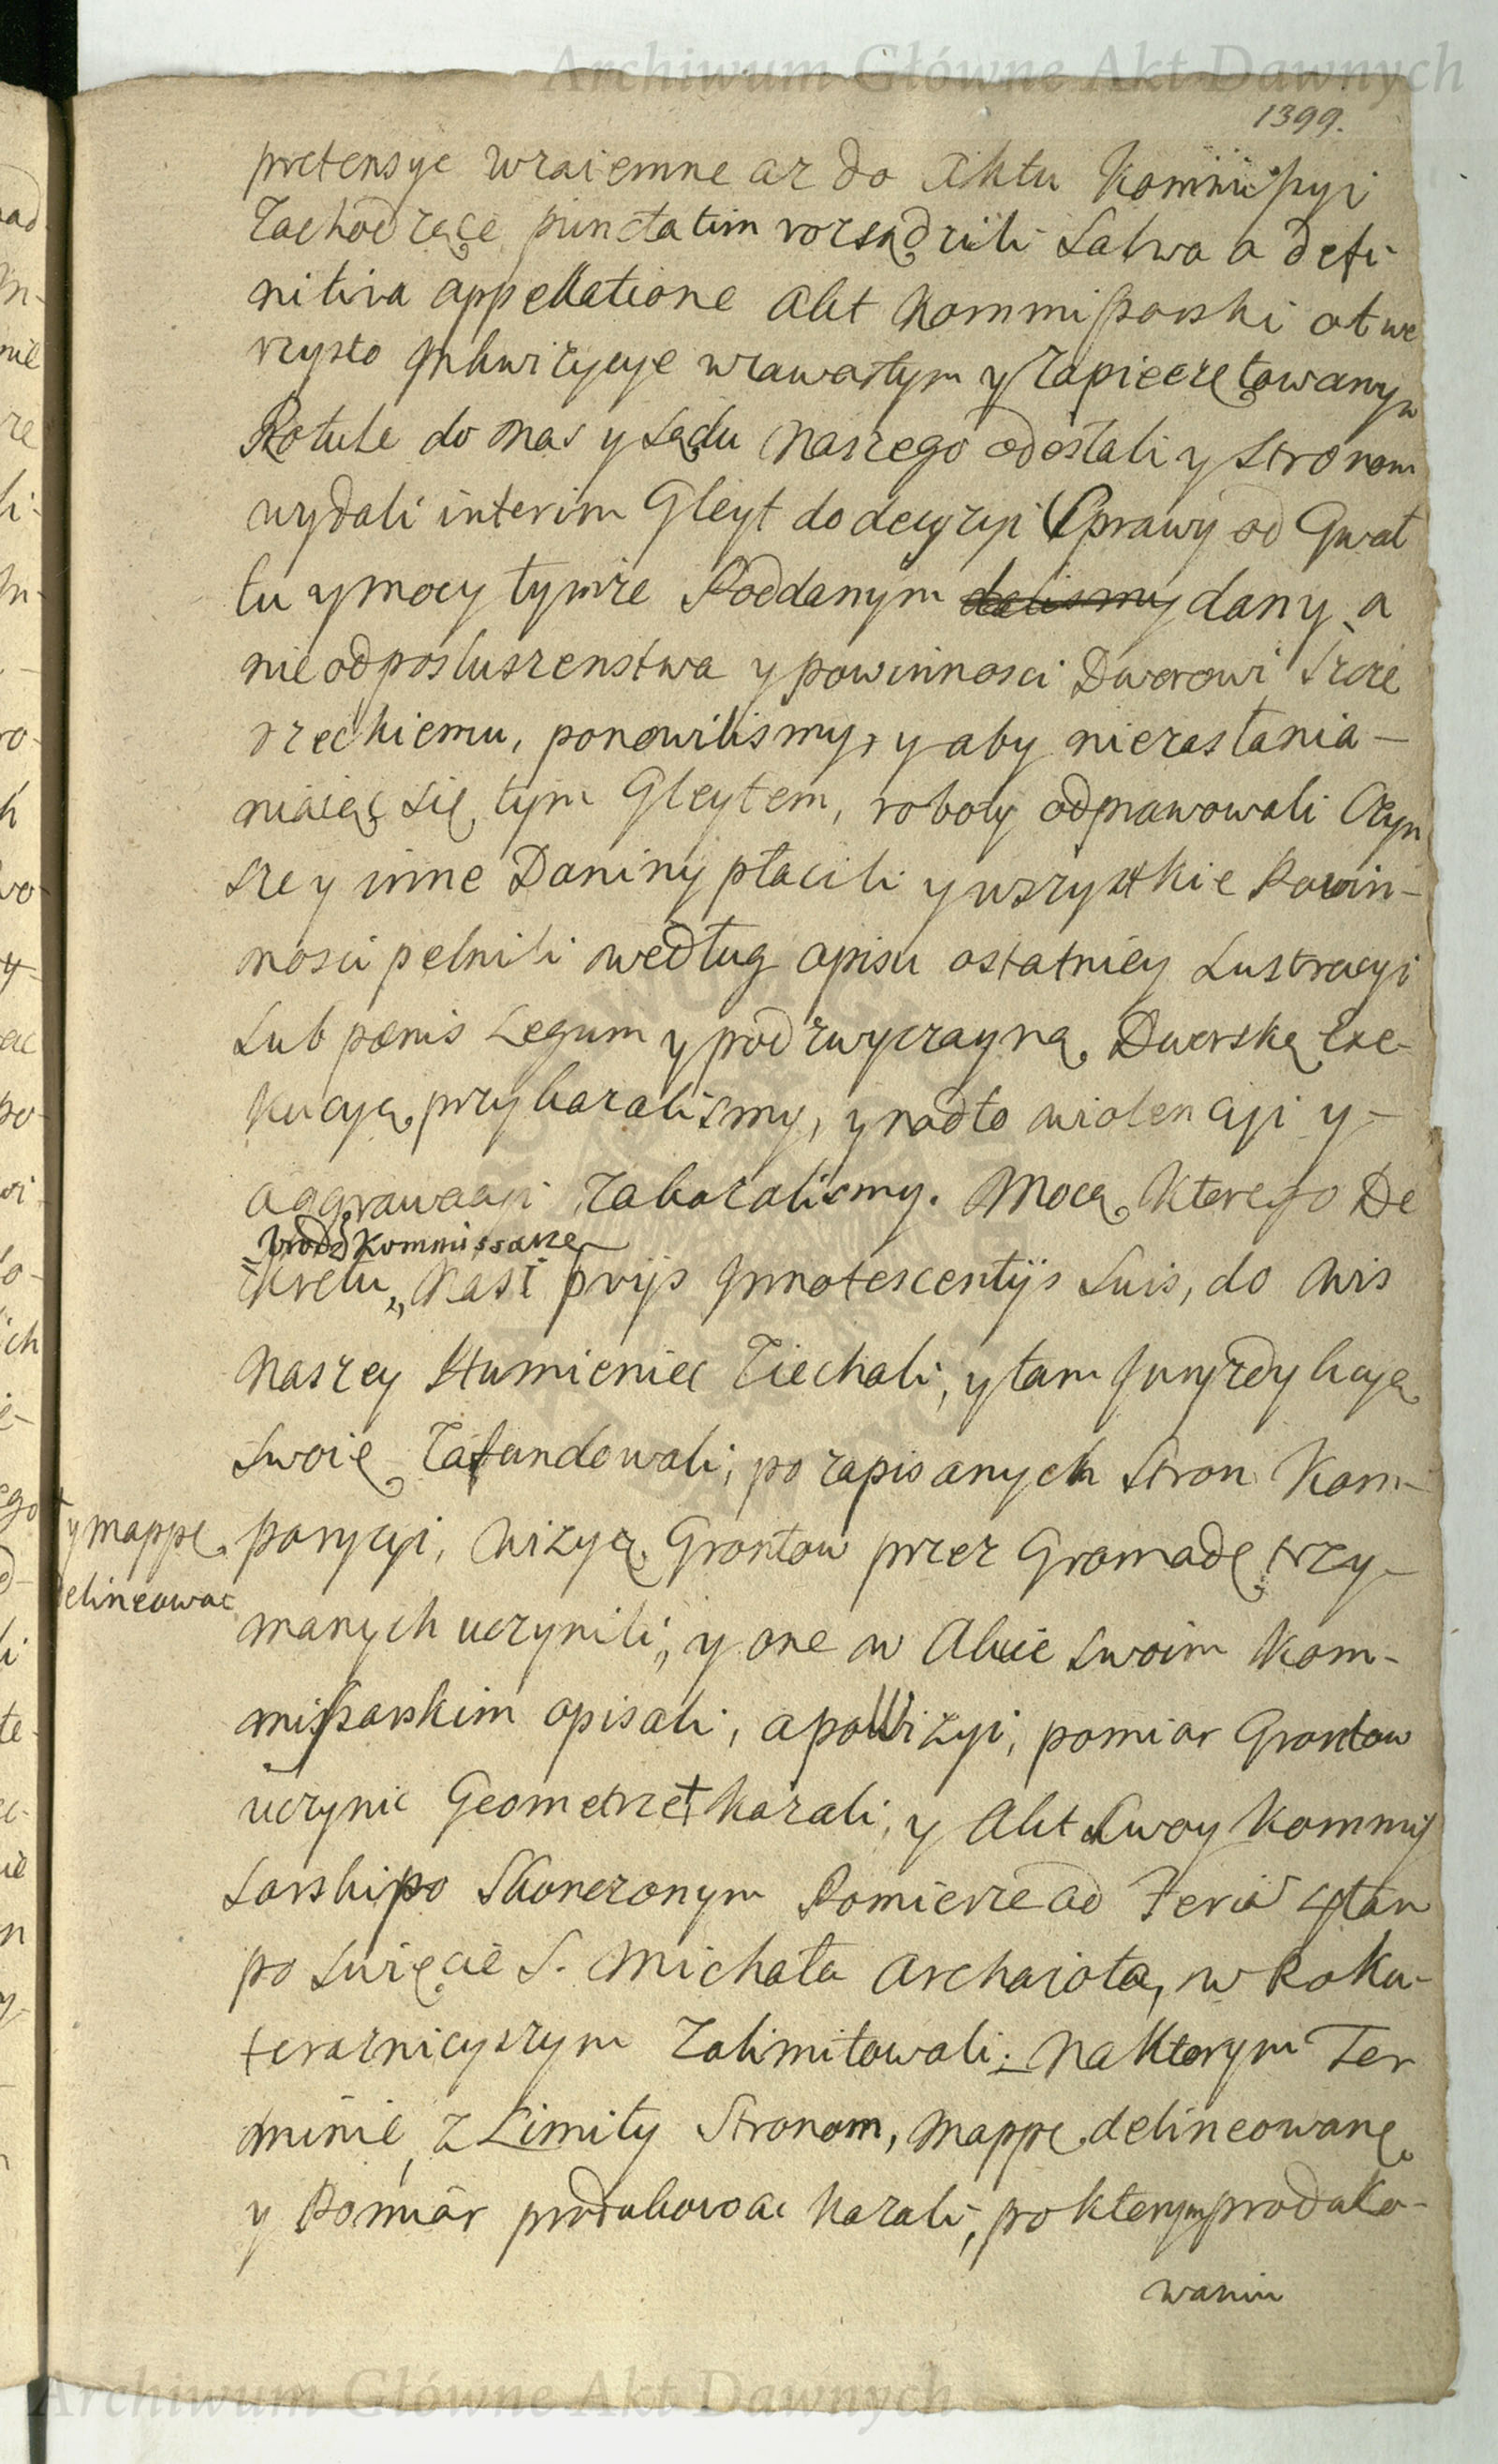 Archiwum Główne Akt Dawnych
1399.
pretensye wzaiemne az do Aktu Kommissyi
zachodzące punctatim rozsądzili Salwa a defi-
nitiva appellatione Akt Kommissarski otwo
rzysto Inkwizycye w zawartym y zapieczętowanym
Rotule do nas y Sądu Naszego odesłali y Stronom
wydali interim Gleyt do decyzyi Sprawy od Gwał
tu y mocy tymże Poddanym dalismy dany, a
nie od posłuszenstwa y powinnosci Dworowi
rzeckiemu, ponowilismy, y aby niezasłania-
niaiąc się tym Gleytem, roboty odprawowali Czyn
sze y inne Daniny płacili y wszystkie Powin-
nosci pełnili według opisu ostatniey Lustracyi
Sub pœnis Legum y pod zwyczayną Dworską Exe-
kucyą przykazalismy, y nadto wiolencyi y-
aggrawacyi zakazalismy. Mocą ktorego De
Urodz Kommissarze
kretu, Nasi prijs Innotescentijs Suis, do Wis
Naszey Stumieniec Ziechali, y tam Juryzdykcyą
Swoię zafundowali, po zapisanych Stron Kom-
parycyi, Wizyą Grontow przez Gromadę trzy-
manych uczynili, y one w Akcie Swoim Kom-
missarskim opisali, a po Wizyi, pomiar Grontow
uczynic Geometrze † kazali, y Akt Swoy Kommis
sarski po Skonczonym Pomierze ad Feria 4tam
po Swięcie S. Michała Archanioła, w Roku-
teraznieyszym Zalimitowali; Na ktorym Ter
minie, z Limity Stronom, Mappę delineowaną
y Pomiar produkowac kazali, po ktorym produko-
waniu
† y mappę
delineowac
Archiwum Główne Akt Dawnych